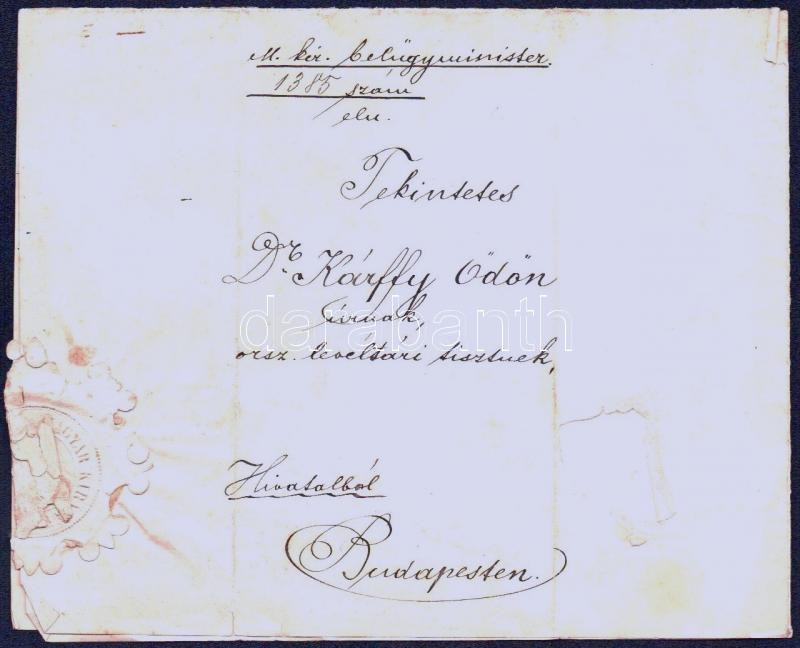 M. kir. belügyminister.
1385 szám
eln.
Tekintetes
Dr. Kárffy Ödön
úrnak,
darabanth
orsz. levéltári tisztnek,
GYAR KIRÁ
Hivatalból
Budapesten.